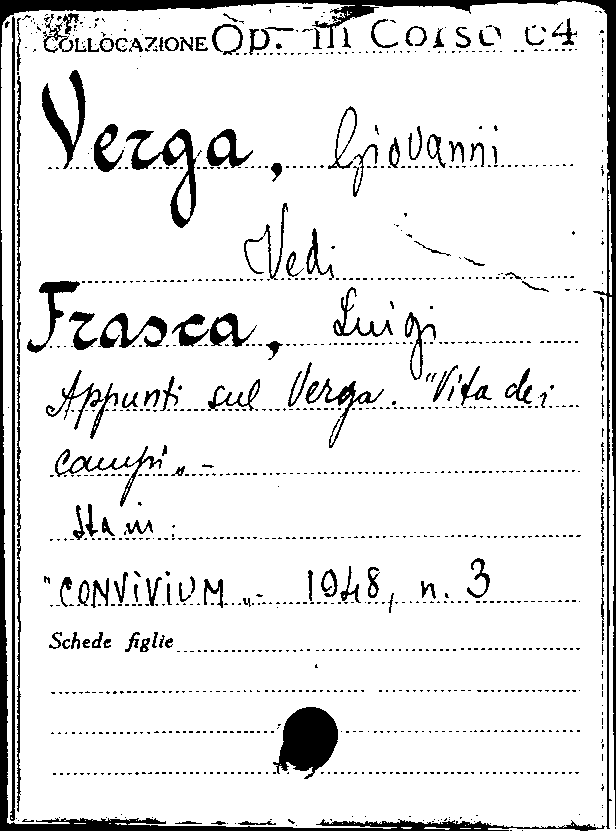 COLLOCAZIONE Op. in Corso 64
Verga, Giovanni
Vedi
Frasca, Luigi
Appunti sul Verga. "Vita dei
campi" -
Sta in:
"CONViViUM" - 1948, n. 3
Schede figlie